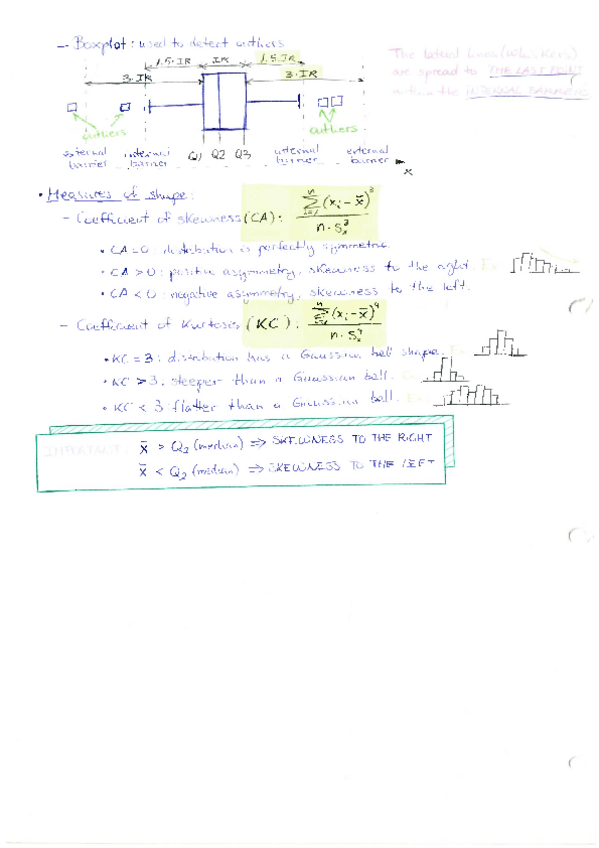 - Boxplot: used to detect outliers
1.5·IR IR 1.5·IR
3·IR 3·IR
The lateral lines (whiskers)
are spread to THE LAST POINT
within the INTERNAL BARRIERS
outliers outliers
external barrier internal barrier Q1 Q2 Q3 internal barrier external barrier
x
• Measures of shape:
- Coefficient of skewness (CA): \frac{\sum_{i=1}^{n} (x_i - x̄)^3}{n · S_x^3}
• CA = 0: distribution is perfectly symmetric.
• CA > 0: positive asymmetry, skewness to the right. Ex:
• CA < 0: negative asymmetry, skewness to the left.
- Coefficient of Kurtosis (KC): \frac{\sum_{i=1}^{n} (x_i - x̄)^4}{n · S_x^4}
• KC = 3: distribution has a Gaussian bell shape. Ex:
• KC > 3: steeper than a Gaussian bell. Ex:
• KC < 3: flatter than a Gaussian bell. Ex:
IMPORTANT: x̄ > Q2 (median) ⇒ SKEWNESS TO THE RIGHT
x̄ < Q2 (median) ⇒ SKEWNESS TO THE LEFT